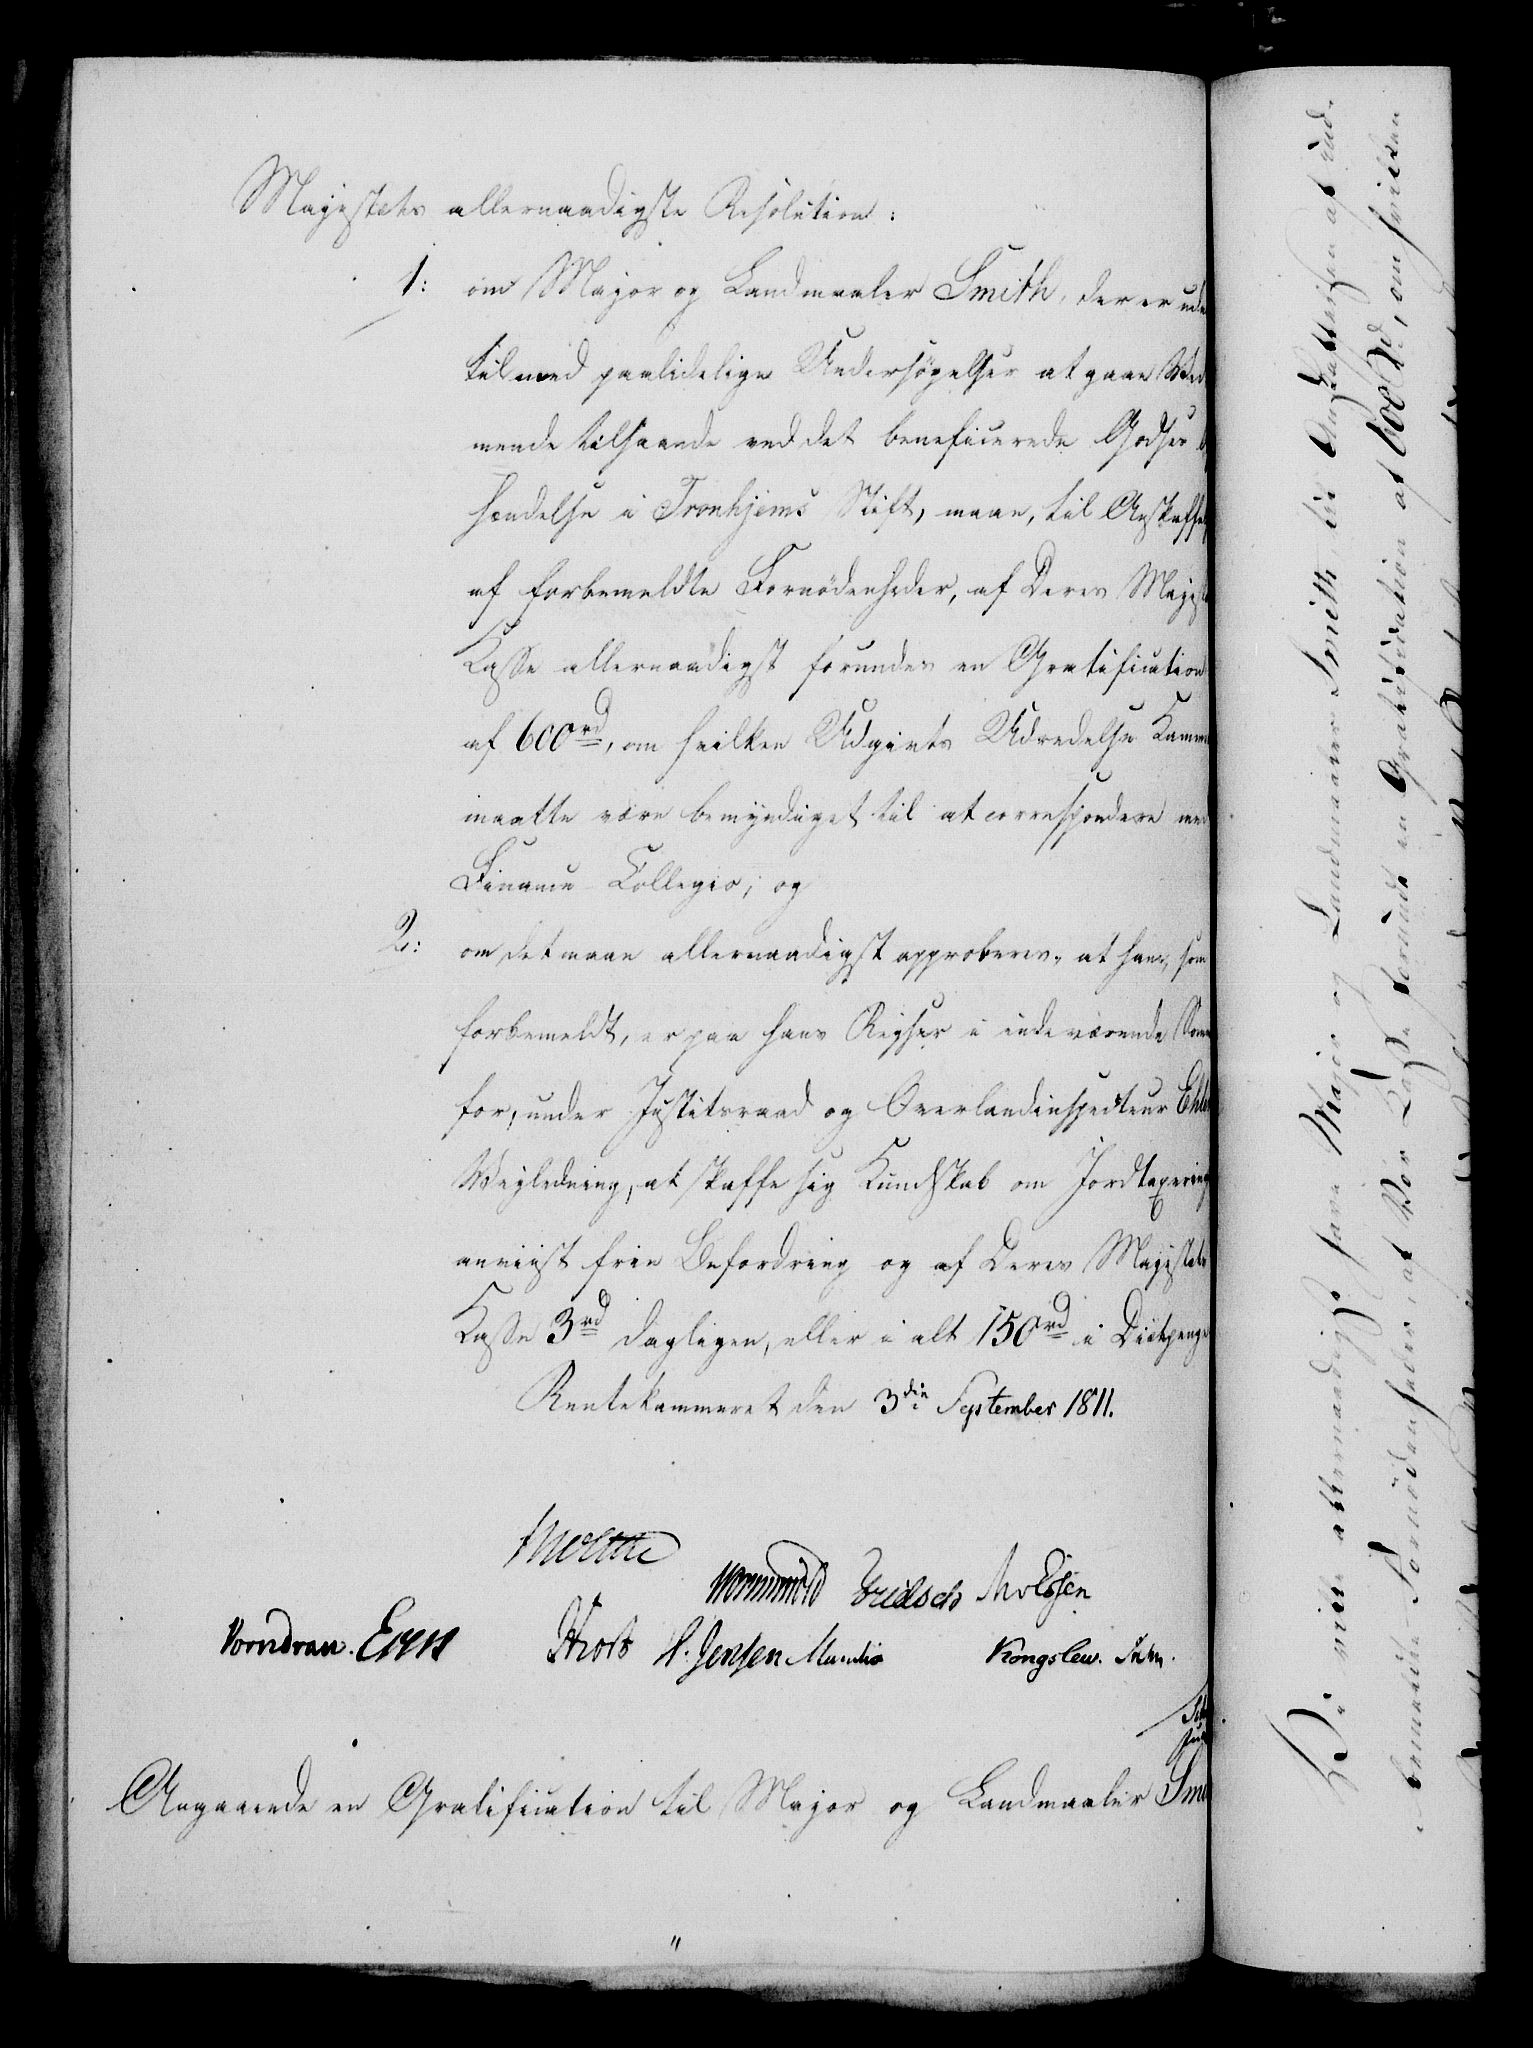 Majestæts allernaadigste Resolution:
1: om Major og Landmaaler Smith, der er ud
til med paalidelige Undersøgelser at gaae Ved
mende tilhaande ved det beneficerede Godses
hændelse i Tronhjems Stift, maae, til Anskaffe
af forbemeldte Fornødenheder, af Deres Majest
Casse allernaadigst forundes en Gratification
af 600 rd, om hvilken Udgivts Udredelse Kamm
maatte være bemyndiget til at correspondere med
Finants Collegio; og
2: om det maae allernaadigst approberes, at ham, som
forbemeldt, er paa hans Reyser i indeværende Som
for, under Justitsraad og Overlandinspecteur Ehl
Vejledning, at skaffe sig Kundskab om Jordtaxering
anviist frie Befordring og af Deres Majestæts
Casse 3 rd dagligen, eller i alt 150 rd i Diætpenge
Rentekammeret den 3die September 1811.
Moltke
Wormskiold Fridsch MvEssen
Vorndran. Hrost H. Jensen Kongslew.
Angaaende en Gratification til Major og Landmaaler Smi
Vi ville allernaadigst have Major og Landmaaler Smith, til Anskaffelsen af end-
bemeldte Fornødenheder, af Vor Casse forundt en Gratification af 600 rd, om hvilken